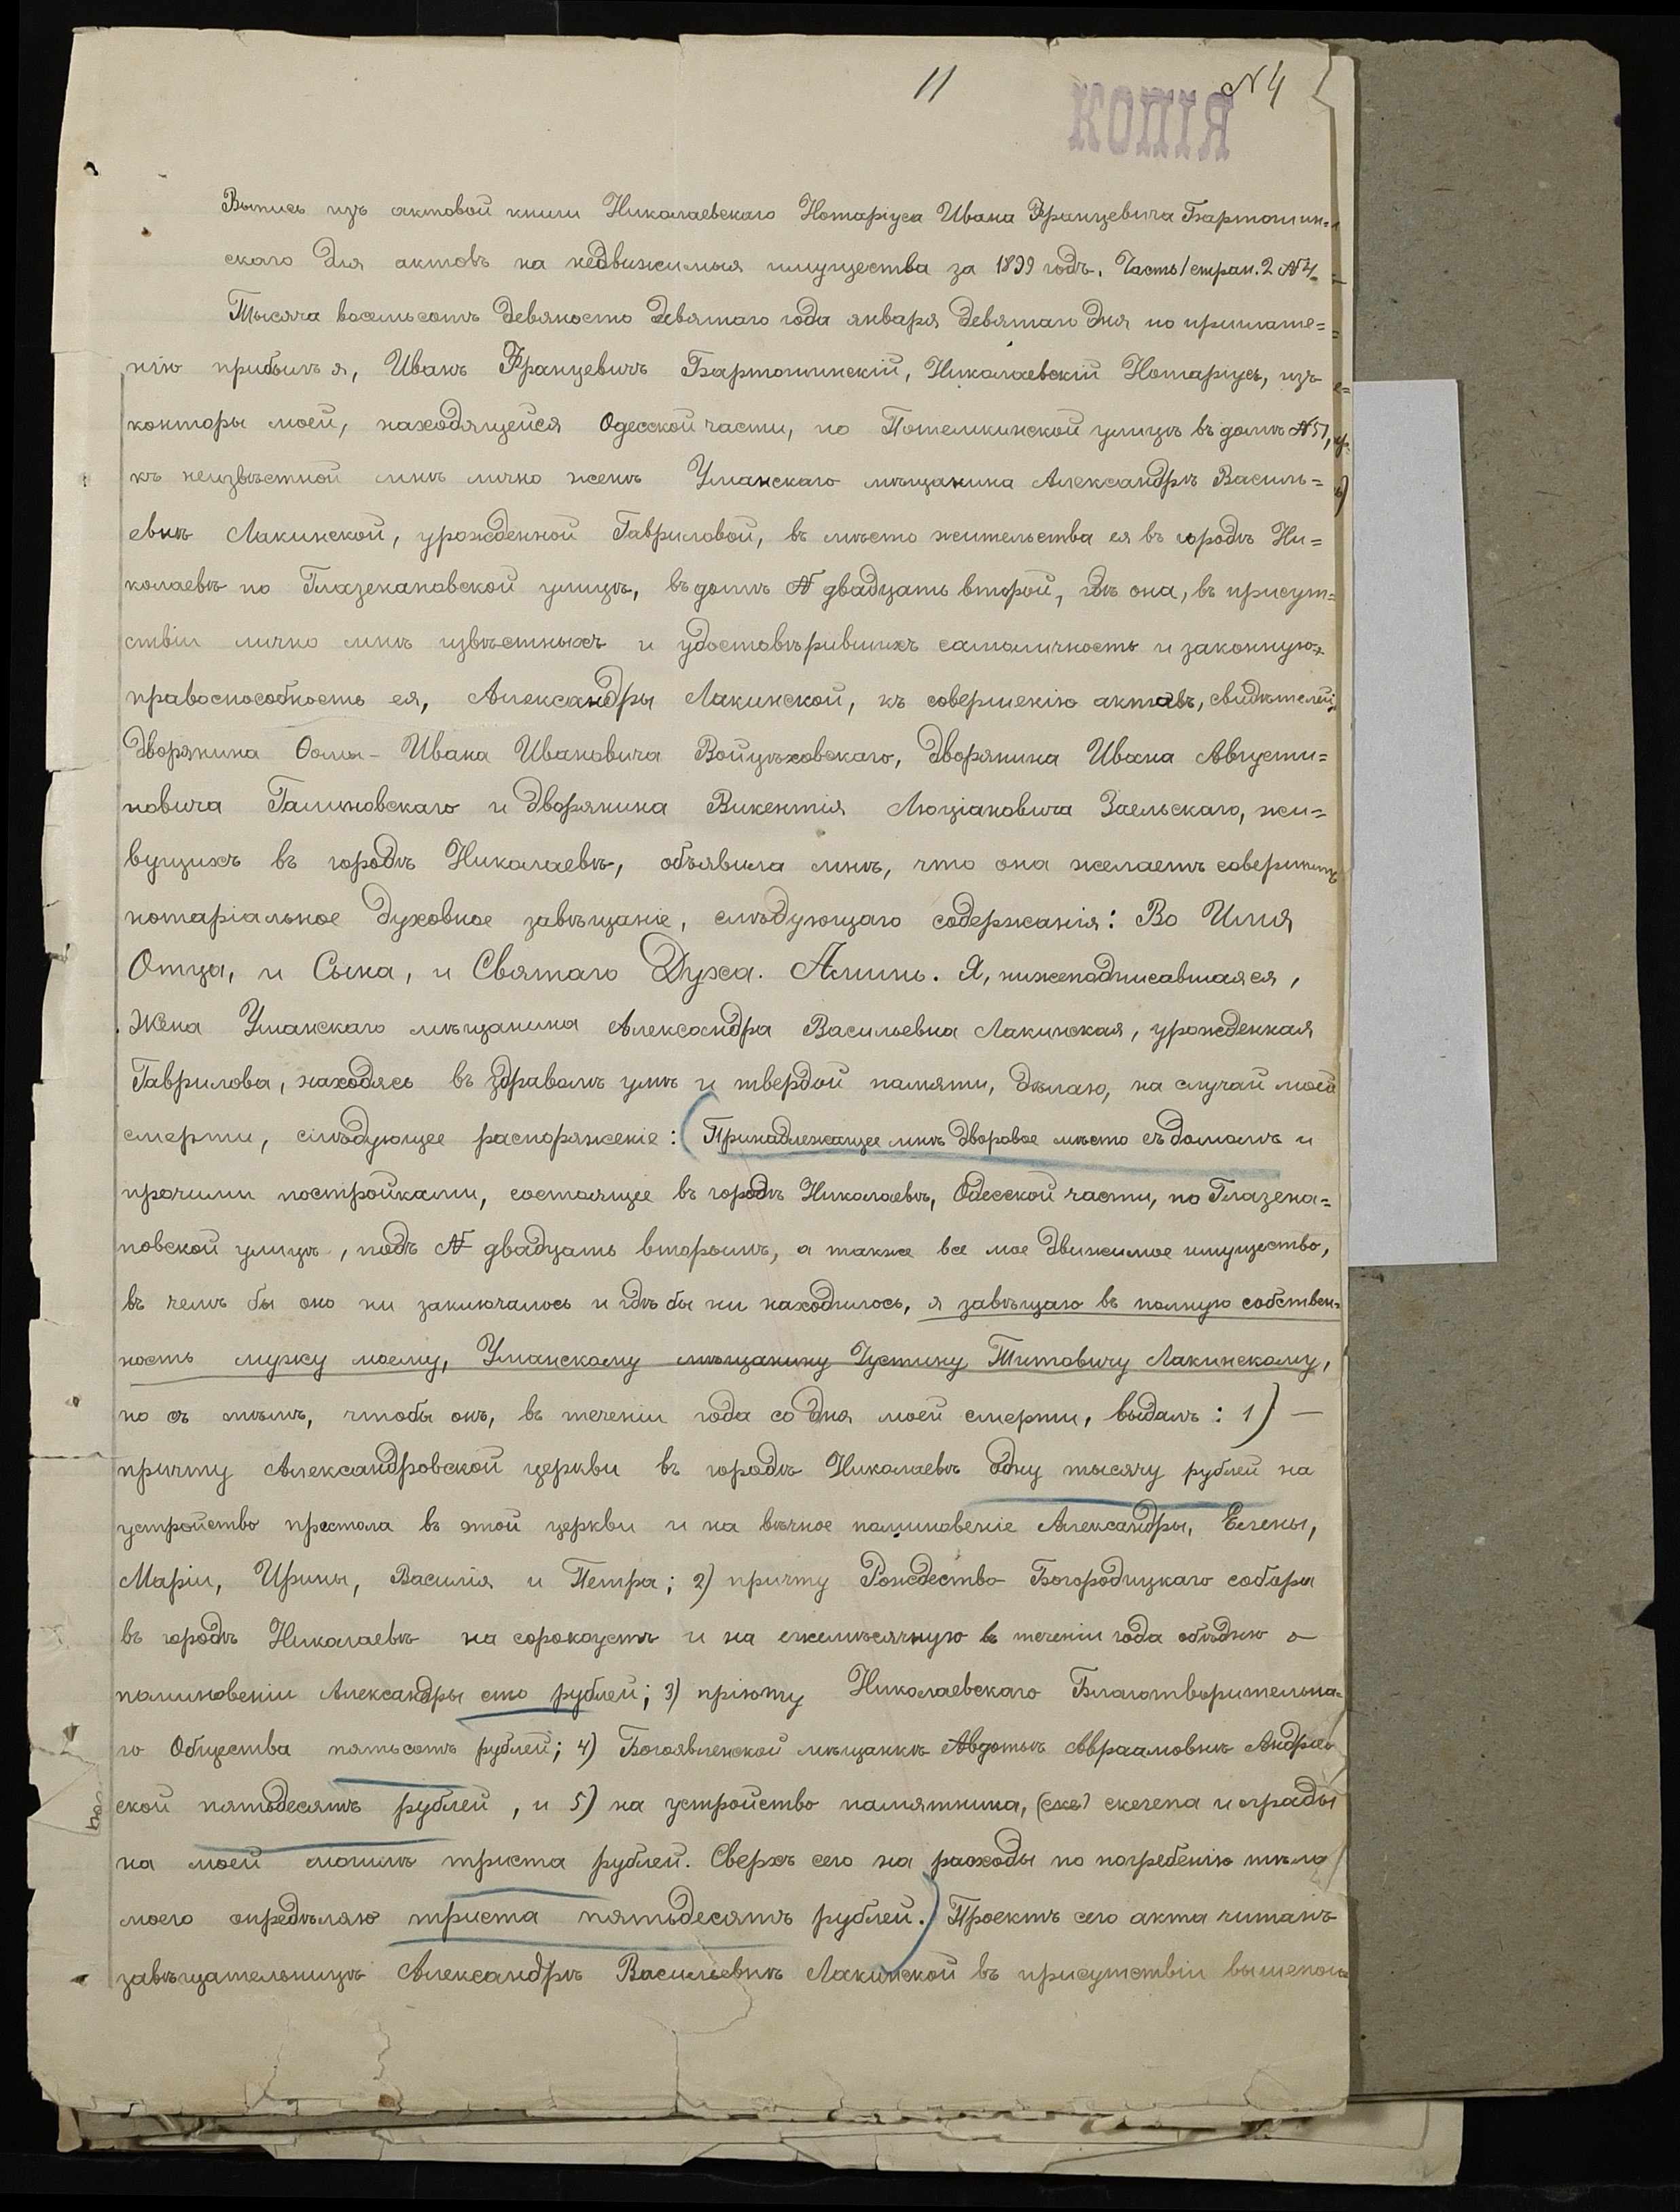 11
N 4
КОПІЯ
Выпись изъ актовой книги Николаевскаго Нотаріуса Ивана Францевича Бартошин=
скаго для актовъ на недвижимыя имущества за 1899 годъ. Часть I стран. 2 N 4.
Тысяча восемьсотъ девяносто девятаго года января девятаго дня по приглаше=
нію прибылъ я, Иванъ Францевичъ Бартошинскій, Николаевскій Нотаріусъ, изъ
конторы моей, находящейся Одесской части, по Потемкинской улицѣ въ домѣ N 51,
къ неизвѣстной мнѣ лично женѣ Уманскаго мѣщанина Александрѣ Василь=
евнѣ Лакинской, урожденной Гавриловой, въ мѣсто жительства ея въ городѣ Ни=
колаевѣ по Глазенаповской улицѣ, въ домѣ N двадцать второй, гдѣ она, въ присут=
ствіи лично мнѣ извѣстныхъ и удостовѣрившихъ самоличность и законную
правоспособность ея, Александры Лакинской, къ совершенію актовъ, свидѣтелей:
дворянина Ѳомы-Ивана Ивановича Войцѣховскаго, дворянина Ивана Августи=
новича Галиновскаго и дворянина Викентія Люціановича Заельскаго, жи=
вущихъ въ городѣ Николаевѣ, объявила мнѣ, что она желаетъ совершить
нотаріальное духовное завѣщаніе, слѣдующаго содержанія: Во Имя
Отца, и Сына, и Святаго Духа. Аминь. Я, нижеподписавшаяся,
жена Уманскаго мѣщанина Александра Васильевна Лакинская, урожденная
Гаврилова, находясь въ здравомъ умѣ и твердой памяти, дѣлаю, на случай моей
смерти, слѣдующее распоряженіе: (Принадлежащее мнѣ дворовое мѣсто съ домомъ и
прочими постройками, состоящее въ городѣ Николаевѣ, Одесской части, по Глазена=
повской улицѣ, подъ N двадцать вторымъ, а также все мое движимое имущество,
въ чемъ бы оно ни заключалось и гдѣ бы ни находилось, я завѣщаю въ полную собствен=
ность мужу моему, Уманскому мѣщанину Іустину Титовичу Лакинскому,
но съ тѣмъ, чтобы онъ, въ теченіи года со дня моей смерти, выдалъ: 1) —
причту Александровской церкви въ городѣ Николаевѣ одну тысячу рублей на
устройство престола въ этой церкви и на вѣчное поминовеніе Александры, Елены,
Маріи, Ирины, Василія и Петра; 2) причту Рождество-Богородицкаго собора
въ городѣ Николаевѣ на сорокоустъ и на ежемѣсячную въ теченіи года обѣдню о
поминовеніи Александры сто рублей; 3) пріюту Николаевскаго Благотворительна=
го Общества пятьсотъ рублей; 4) Богоявленской мѣщанкѣ Авдотьѣ Авраамовнѣ
ской пятьдесятъ рублей, и 5) на устройство памятника, (ске) склепа и ограды
на моей могилѣ триста рублей. Сверхъ сего на расходы по погребенію тѣла
моего опредѣляю триста пятьдесятъ рублей.) Проектъ сего акта читанъ
завѣщательницѣ Александрѣ Васильевнѣ Лакинской въ присутствіи